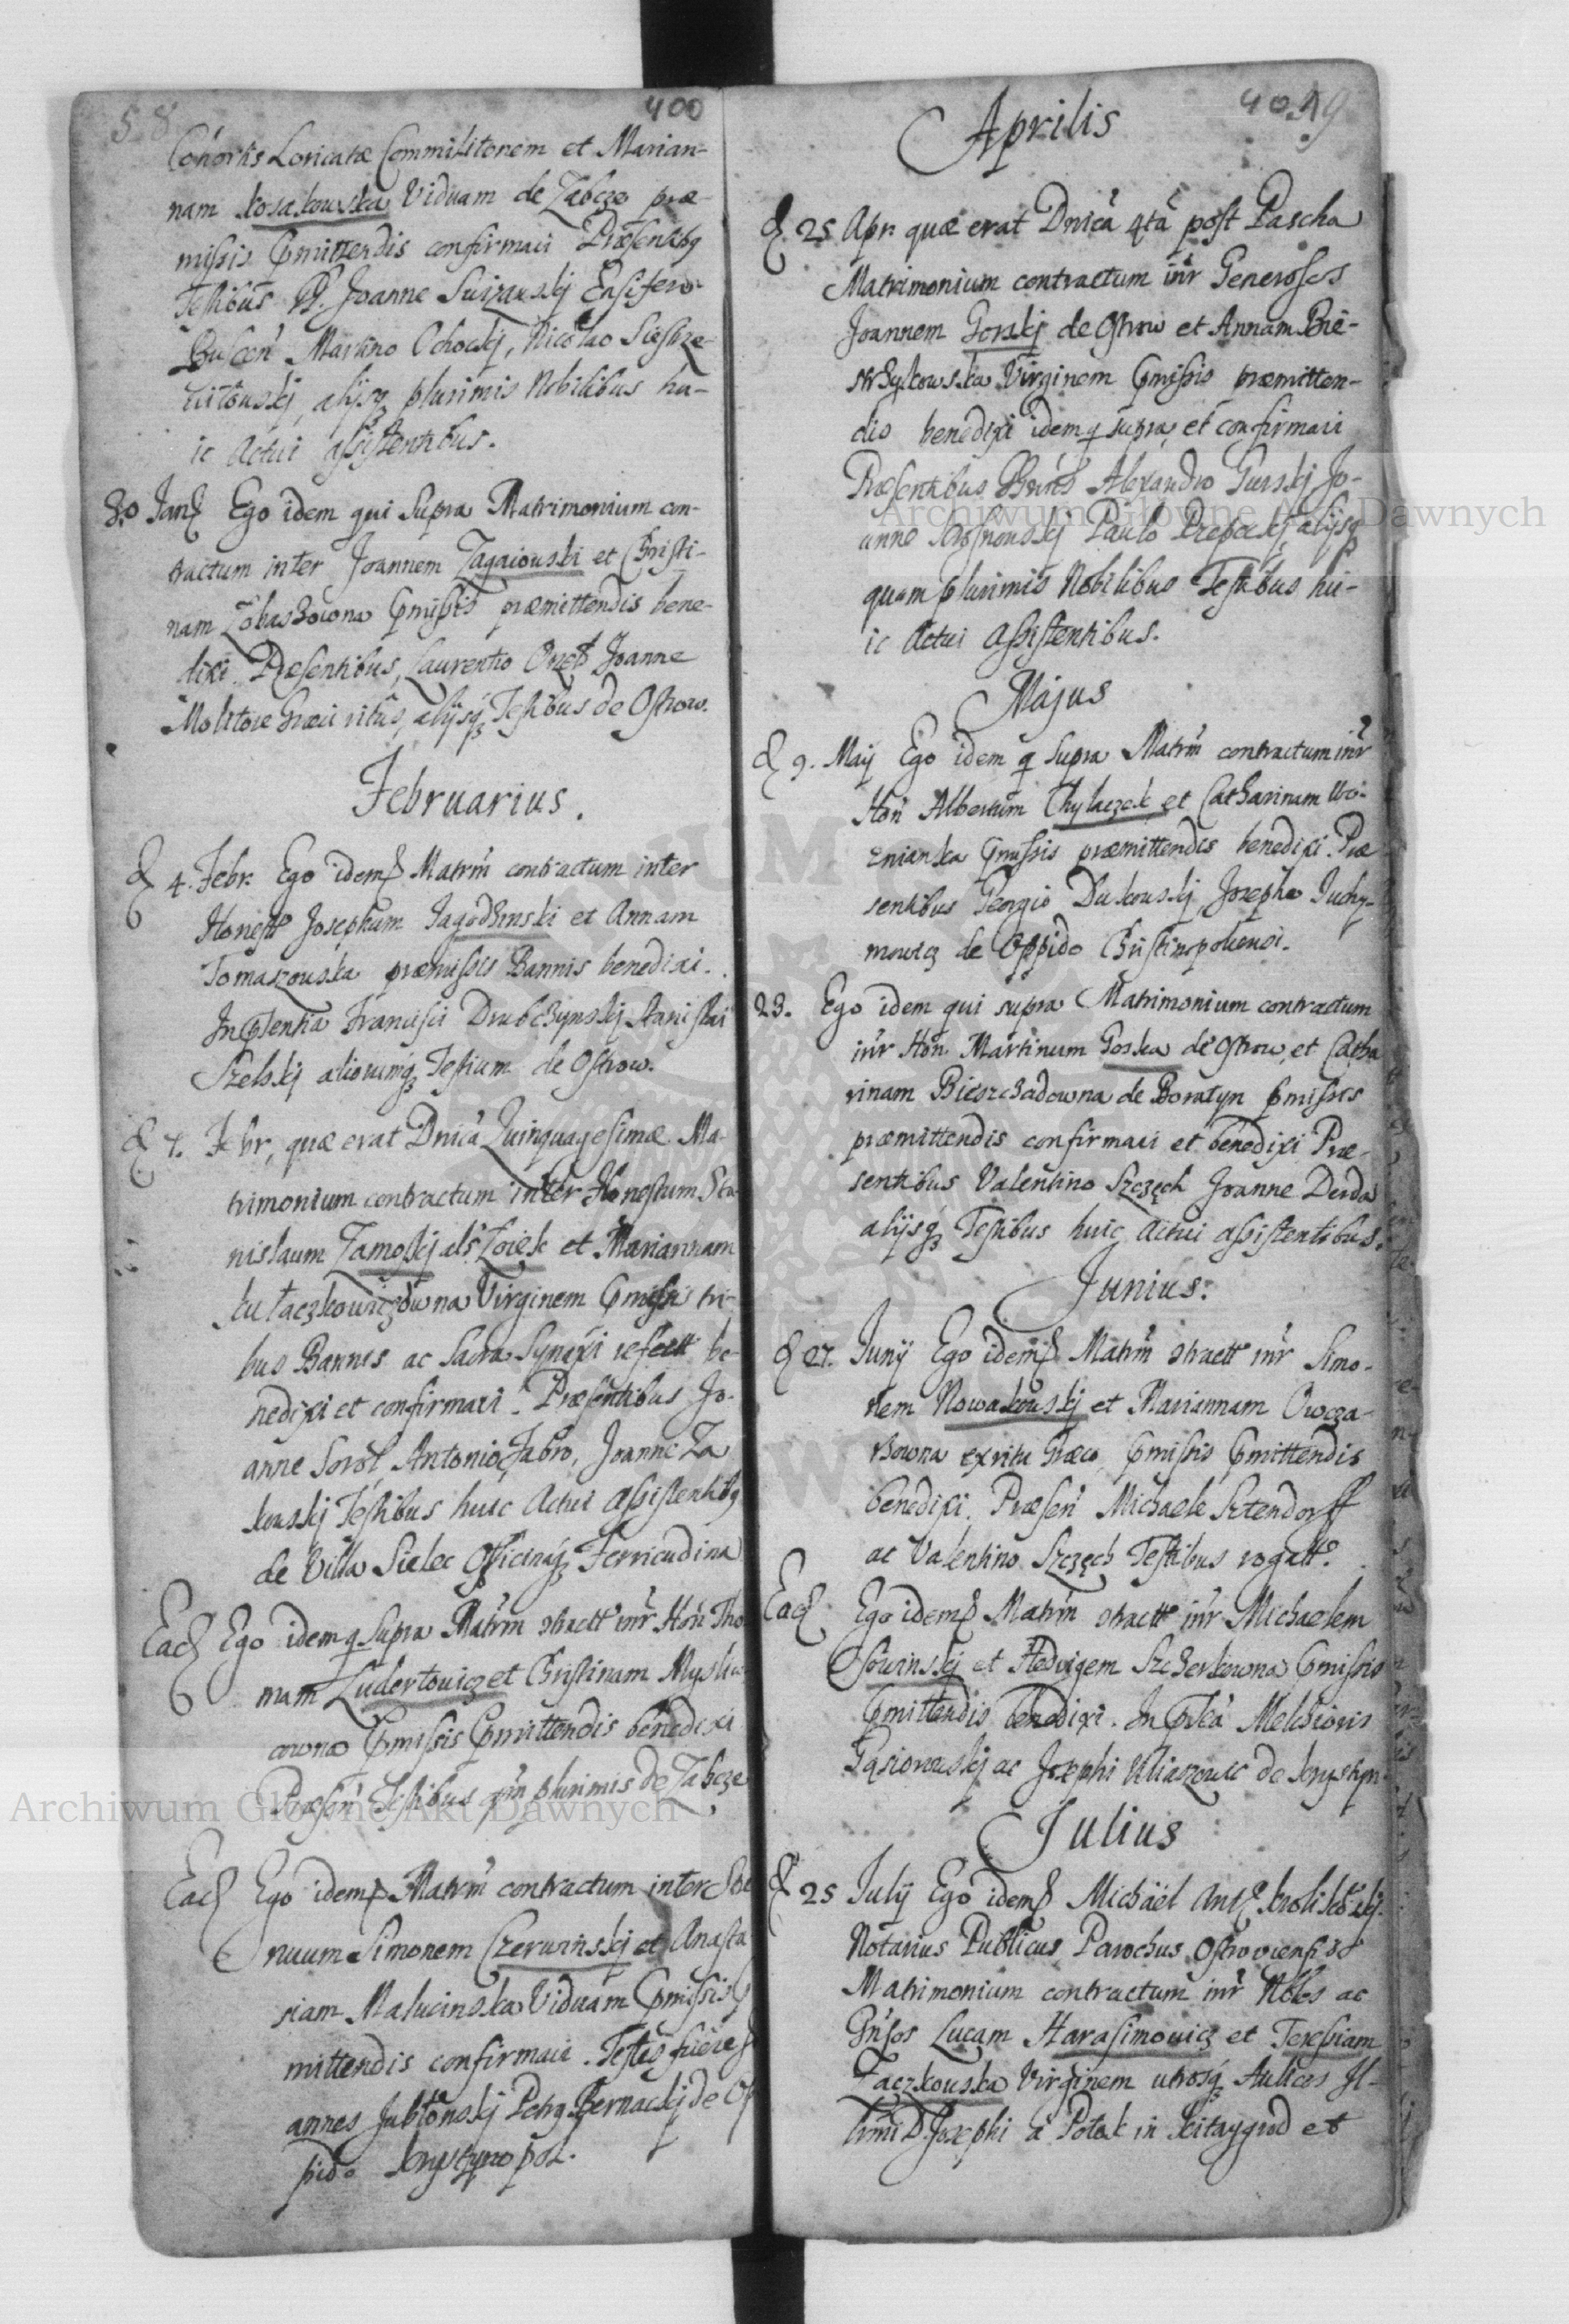 58 400
Cohortis Loricatæ Commilitonem et Marian-
nam Kosakowska Viduam de Zabcze præ-
missis pmittendis confirmavi Præsentibq
Testibus PP. Joanne Ensifero
Martino Ochockj, Nicolao Siestrze-
witowskj alijsq plurimis Nobilibus hu-
ic Actui assistentibus.
30 Jan Ego idem qui Supra Matrimonium con-
tractum inter Joannem Zagaiowski et Christi-
nam pmissis præmittendis bene-
dixi. Præsentibus, Laurentio Joanne
Molitore Græci ritus, alijsq Testibus de Ostrow.
Februarius.
d 4. Febr. Ego idem Matrm contractum inter
Honest Josephum Jagodzinski et Annam
Tomaszowska præmissis Bannis benedixi.
In Psentia Francisci Drabczynskj Stanislai
Szelskj aliorumq Testium de Ostrow.
d 7. Febr, quæ erat Dnica Quinquagesimæ Ma-
trimonium contractum inter Honestum Sta-
nislaum Zamoskj als Zoiek et Mariannam
Kułaczkowiczowna Virginem pmissis tri-
bus Bannis ac Sacra Synaxi refectt be-
nedixi et confirmavi. Præsentibus Jo-
anne Sorol, Antonio Fabro, Joanne Za
kowskj Testibus huic Actui assistentibq
de Villa Sielec Officinaq Ferricudina
Ead Ego idem q Supra Matrm ctractt inr Hon Tho
mam Ludertowicz et Christinam Mysliw
cowna pmissis pmittendis benedixi
Præsen Testibus qm plurimis de Zabcze
Ead Ego idem Matrm contractum inter Stre
nuum Simonem Czerwinskj et Anasta
siam Malucinska Viduam pmissis p
mittendis confirmavi. Testes fuere Jo
annes Jabłonskj Petrq Bernackj de Op
pido Krystynopol.
401 59
Aprilis
d. 25 Apr. quæ erat Dnica 4ta post Pascha
Matrimonium contractum inr Generosos
Joannem Gorskj de Ostrow et Annam Bie-
strzykowska Virginem pmissis præmitten-
dis benedixi idem q supra et confirmavi
Præsentibus Alexandro Gurskj Jo-
anne Paulo alijsq
quam plurimis Nobilibus Testibus hu-
ic Actui Assistentibus.
Majus
d 9. Maij Ego idem q supra Matrm contractum inr
Hon Albertum Chylaczek et Catharinam Wo-
znianka pmissis præmittendis benedixi. Præ
sentibus Georgio Dukowskj, Josepho Juchy-
mowicz de Oppido Christinopoliensi.
23. Ego idem qui supra Matrimonium contractum
inr Hon. Martinum Goska de Ostrow, et Catha
rinam Bieszczadowna de Boratyn pmissis
præmittendis confirmavi et benedixi Præ-
sentibus Valentino Szczęch Joanne Derda
alijsq Testibus huic Actui assistentibus.
Junius.
d 27. Junij Ego idem Matrm ctractt inr Simo-
nem Nowakowskj et Mariannam Owcza-
rzowna ex ritu Græco pmissis pmittendis
benedixi. Præsen Michaele Sztendorff
ac Valentino Szczęch Testibus rogatt.
Ead Ego idem Matrm ctractt inr Michaelem
Sowinskj et Hedvigem Szcherkowna pmissis
pmittendis benedixi. In Psea Melchioris
Gąsiorowskj ac Josephi Uliaszowic de Krystyn
Julius
d 25 Julij Ego idem Michael Ant Krolikowskj
Notarius Publicus Parochus Ostroviensis
Matrimonium contractum inr Nbles ac
Gnsos Lucam Harasimowicz et Teressiam
Łaczkowska Virginem utrosq Aulicos Il-
lmi D. Josephi a Potok in Kitaygrod et
Archiwum Główne Akt Dawnych
Archiwum Główne Akt Dawnych